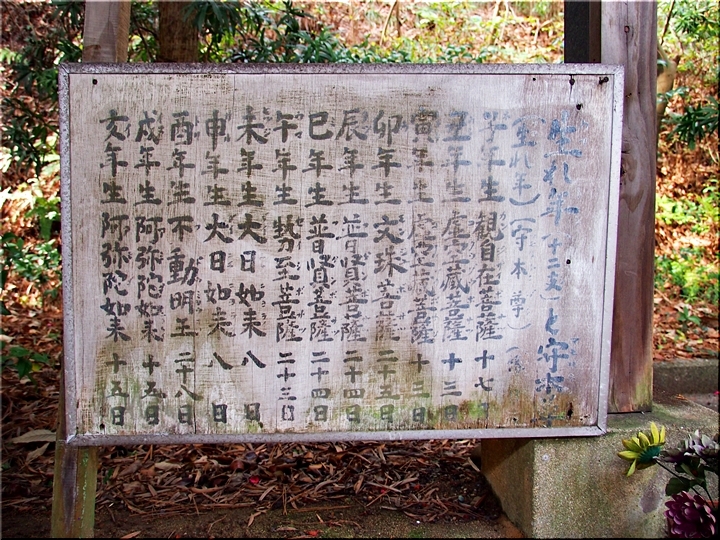 生れ年(十二支)と守本
(生れ年)(守本尊)
子年生 観自在菩薩 十七日
丑年生 虚空蔵菩薩 十三日
寅年生 虚空蔵菩薩 十三日
卯年生 文珠菩薩 二十五日
辰年生 普賢菩薩 二十四日
巳年生 普賢菩薩 二十四日
午年生 勢至菩薩 二十三日
未年生 大日如来 八日
申年生 大日如来 八日
酉年生 不動明王 二十八日
戌年生 阿弥陀如来 十五日
亥年生 阿弥陀如来 十五日